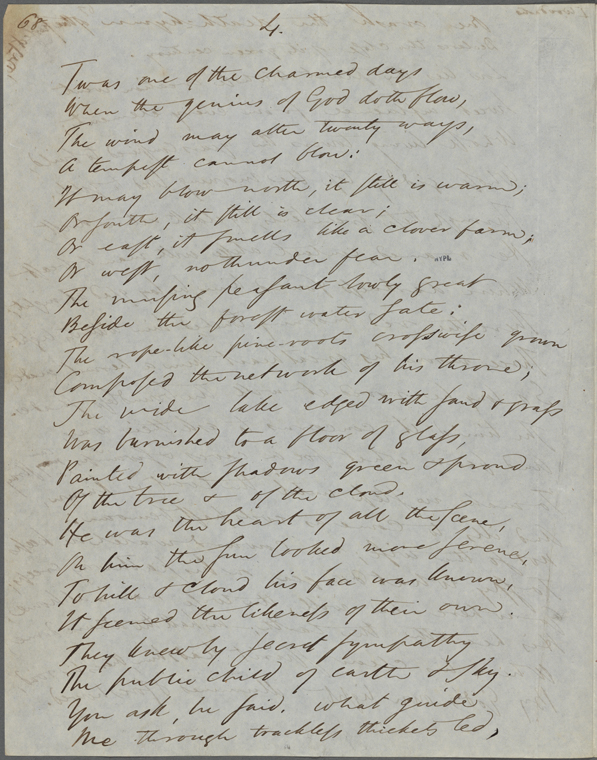 68
4.
Twas one of the charmed days
When the genius of God doth flow,
The wind may alter twenty ways,
A tempest cannot blow:
It may blow north, it still is warm;
Or south, it still is clear;
Or east, it smells like a clover farm;
Or west, no thunder fear.
NYPL
The musing peasant lowly great
Beside the forest water sate:
The rope-like pine-roots crosswise grown
Composed the network of his throne;
The wide lake edged with sand & grass
Was burnished to a floor of glass,
Painted with shadows green & proud
Of the tree & of the cloud.
He was the heart of all the scene,
On him the sun looked more serene,
To hill & cloud his face was known,
It seemed the likeness of their own.
They knew by secret sympathy
The public child of earth & sky.
You ask, he said, what guide
Me through trackless thickets led,